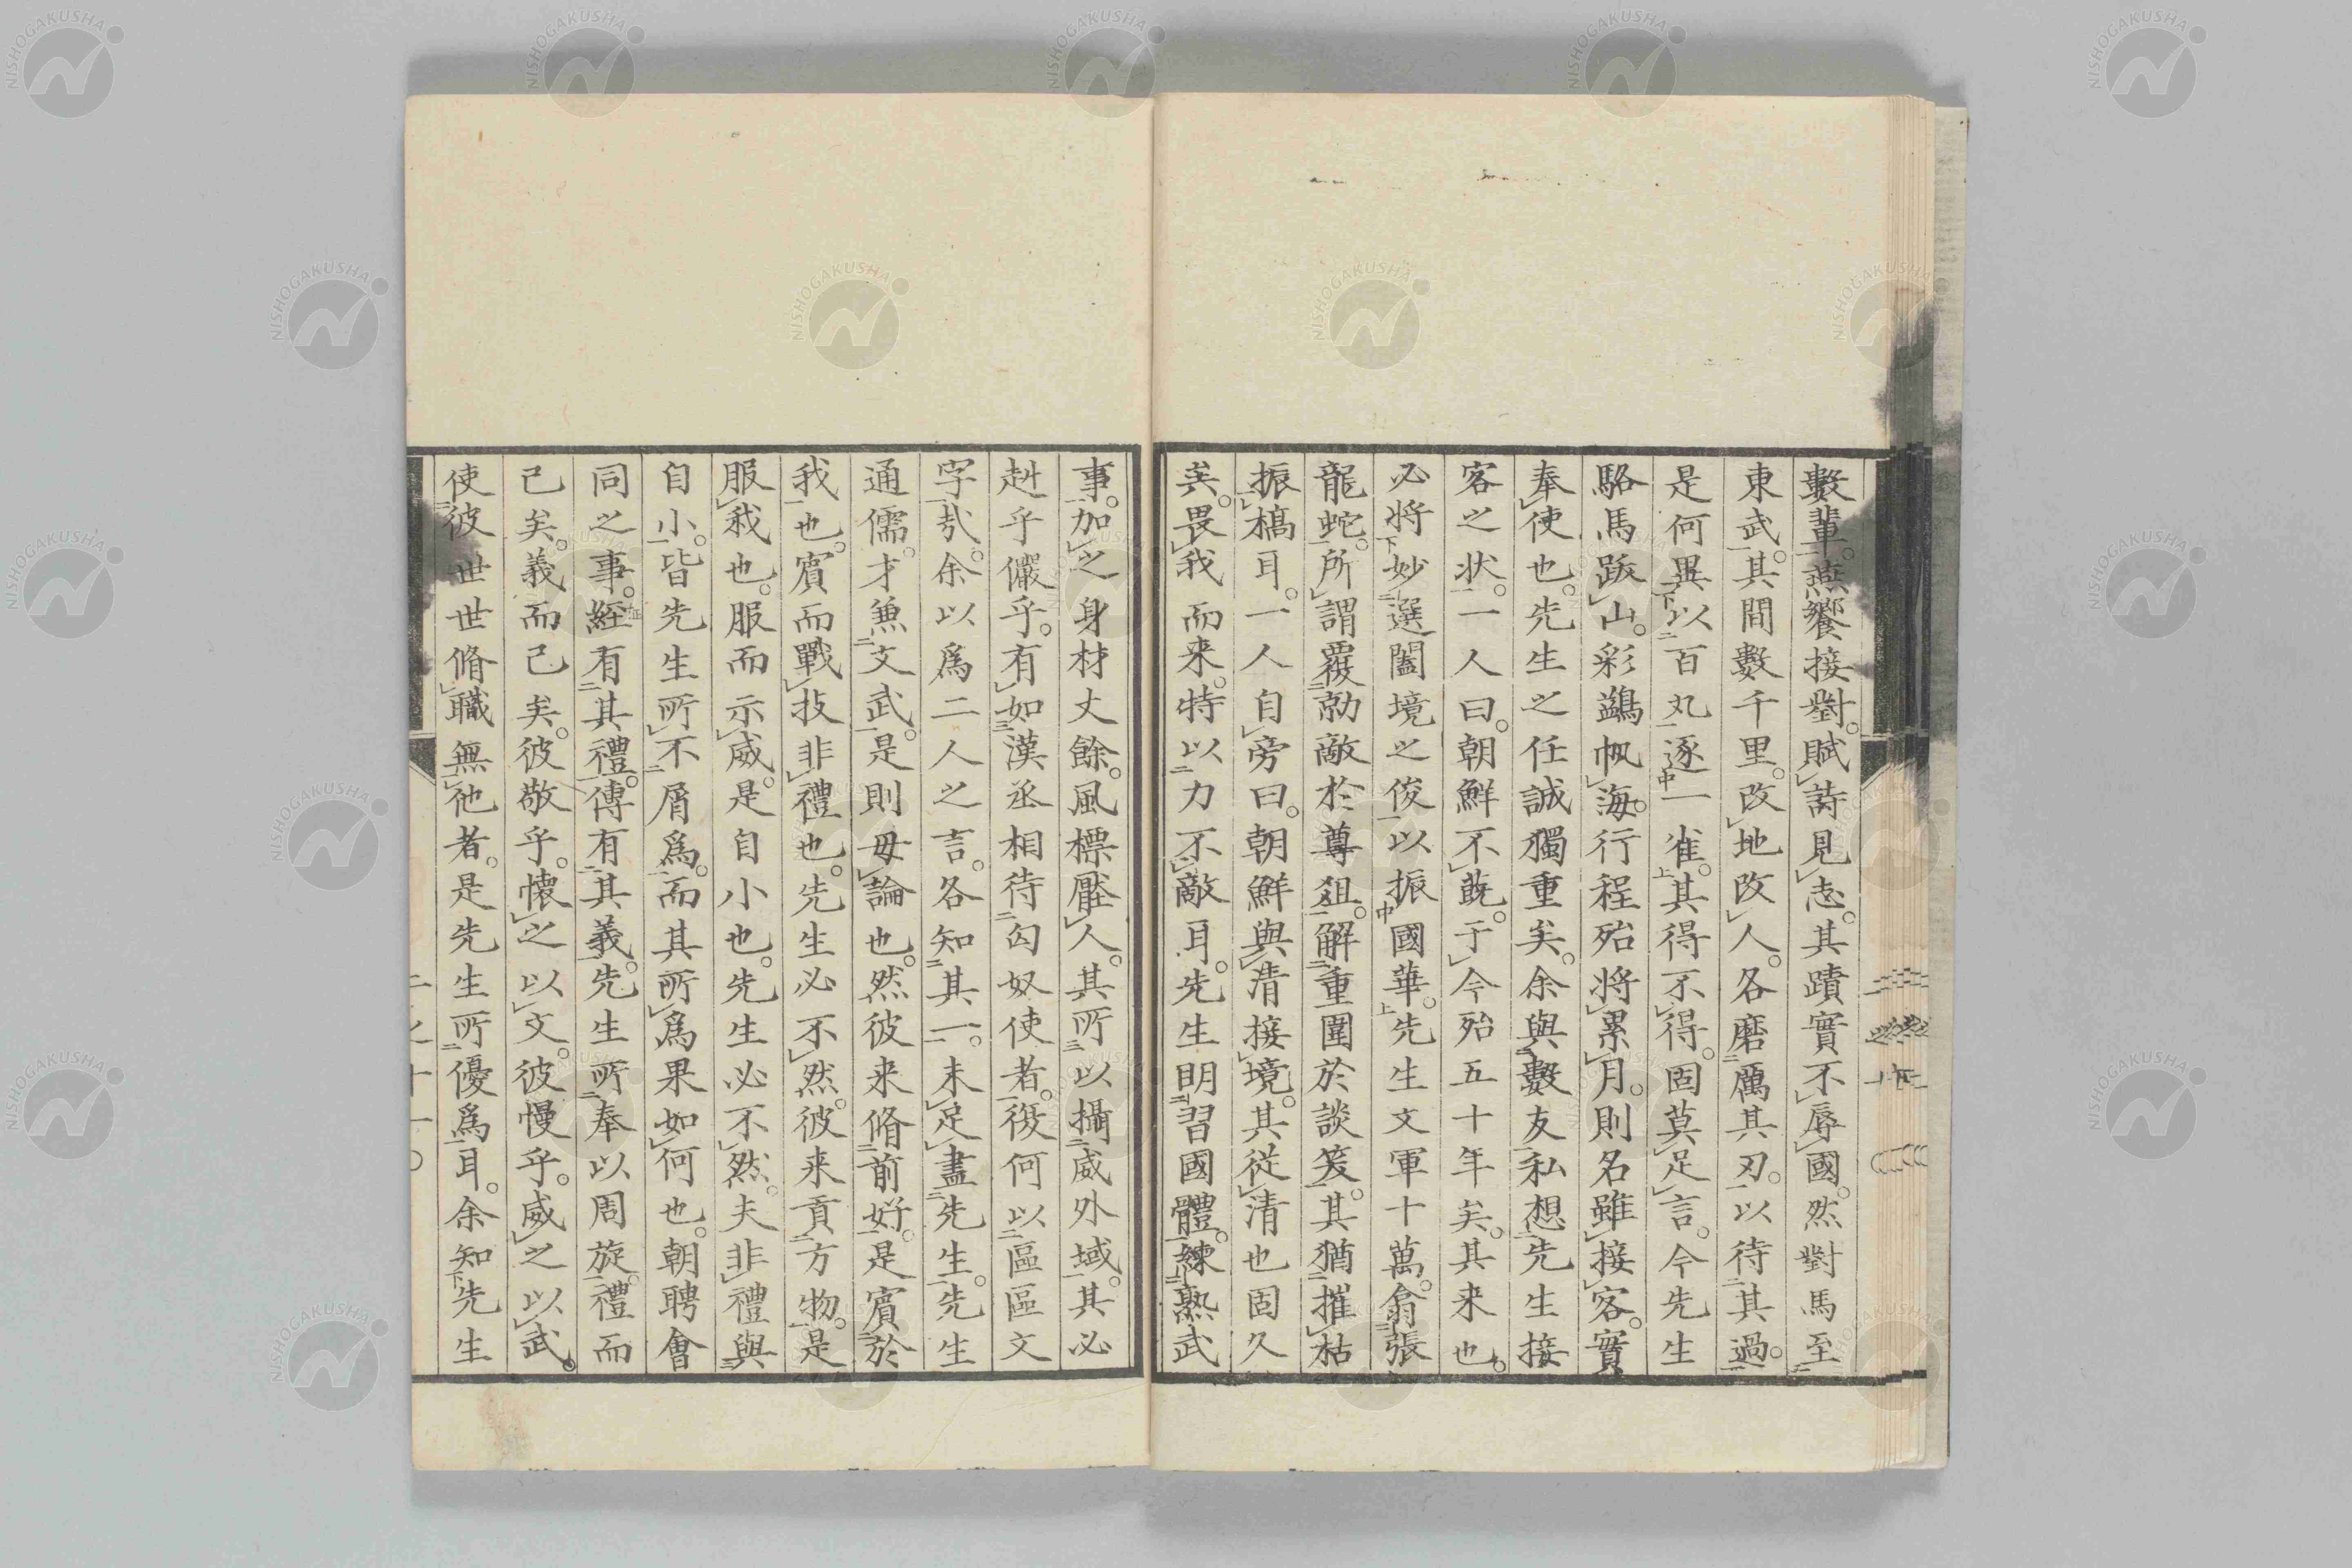 數輩。燕饗接對。賦詩見志。其蹟實不辱國。然對馬至
東武。其間數千里。改地改人。各磨厲其刃。以待其過。
是何異以百丸逐一雀。其得不得。固莫足言。今先生
駱馬跋山。彩鷁帆海。行程殆將累月。則名雖接客。實
奉使也。先生之任誠獨重矣。余與數友私想先生接
客之狀。一人曰。朝鮮不戢。于今殆五十年矣。其来也。
必將妙選闔境之俊。以振國華。先生文軍十萬。翕張
龍蛇。所謂覆勍敵於尊俎。解重圍於談笑。其猶摧枯
振槁耳。一人自旁曰。朝鮮與清接境。其從清也固久
矣。畏我而来。特以力不敵耳。先生明習國體。練熟武
事。加之身材丈餘。風標壓人。其所以攝威外域。其必
赳乎儼乎。有如漢丞相待匈奴使者。復何以區區文
字㢤。余以爲二人之言。各知其一。未足盡先生。先生
通儒。才兼文武。是則毋論也。然彼来脩前好。是賓於
我也。賓而戰技非禮也。先生必不然。彼来貢方物。是
服我也。服而示威。是自小也。先生必不然。夫非禮與
自小。皆先生所不屑爲。而其所爲果如何也。朝聘會
同之事。經有其禮。傳有其義。先生所奉以周旋。禮而
已矣。義而已矣。彼敬乎。懷之以文。彼慢乎。威之以武。
使彼世世脩職無他者。是先生所優爲耳。余知先生
二之十一〇
NISHOGAKUSHA